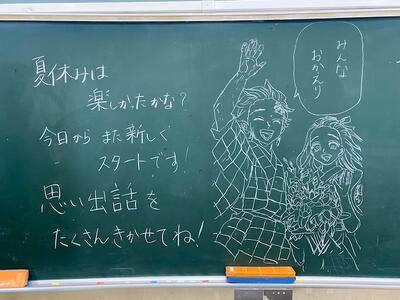 夏休みは
楽しかったかな？
今日から また新しく
スタートです！
思い出話を
たくさんきかせてね！
みんな
おかえり